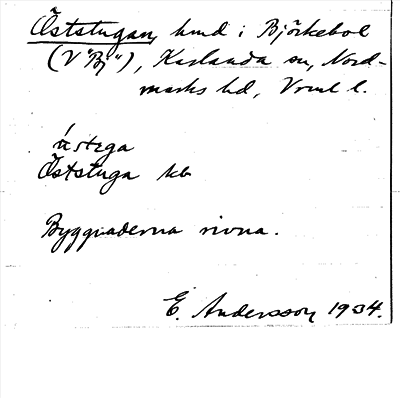 Öststugan, hmd i Björkebol
(V "Bj"), Karlanda sn, Nord-
marks hd, Vrml l.
ústega
Öststuga kb
Byggnaderna rivna.
E. Andersson 1934.